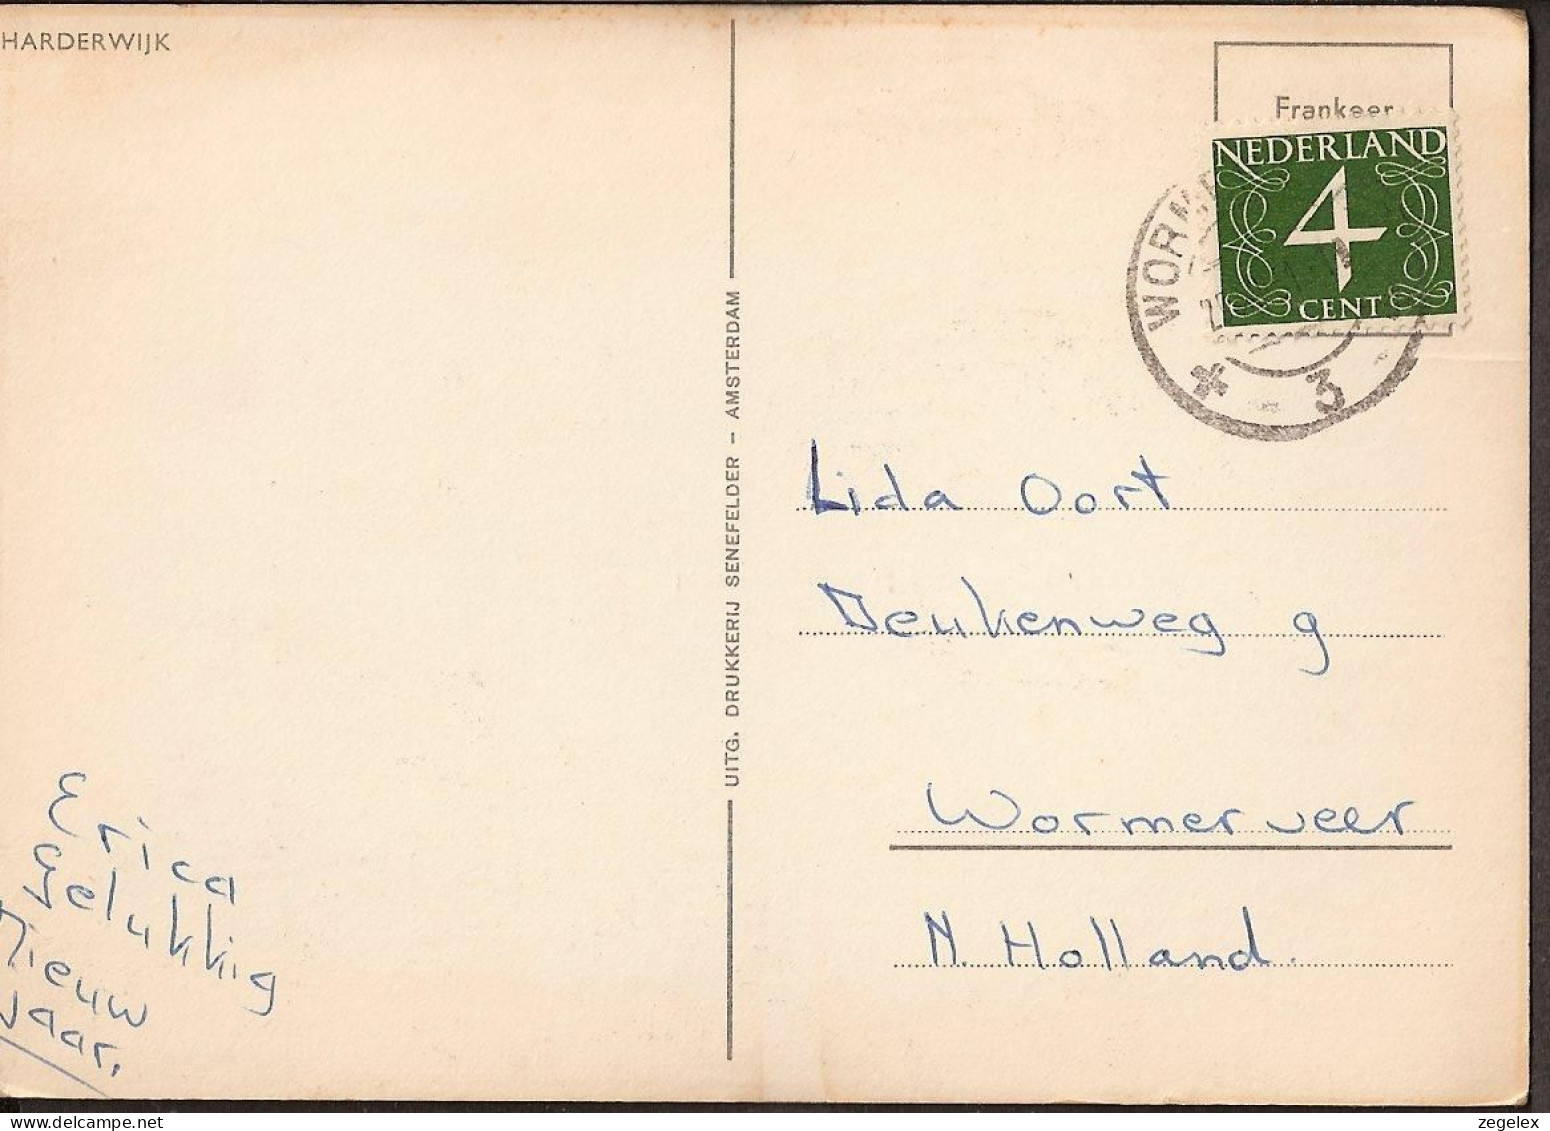 HARDERWIJK
Frankeer
NEDERLAND
4
CENT
WORM
3
UITG. DRUKKERIJ SENEFELDER – AMSTERDAM
Lida Oort
Deukenweg 9
Wormerveer
N. Holland.
Erica
Gelukkig
Nieuw
Jaar.
zegelex